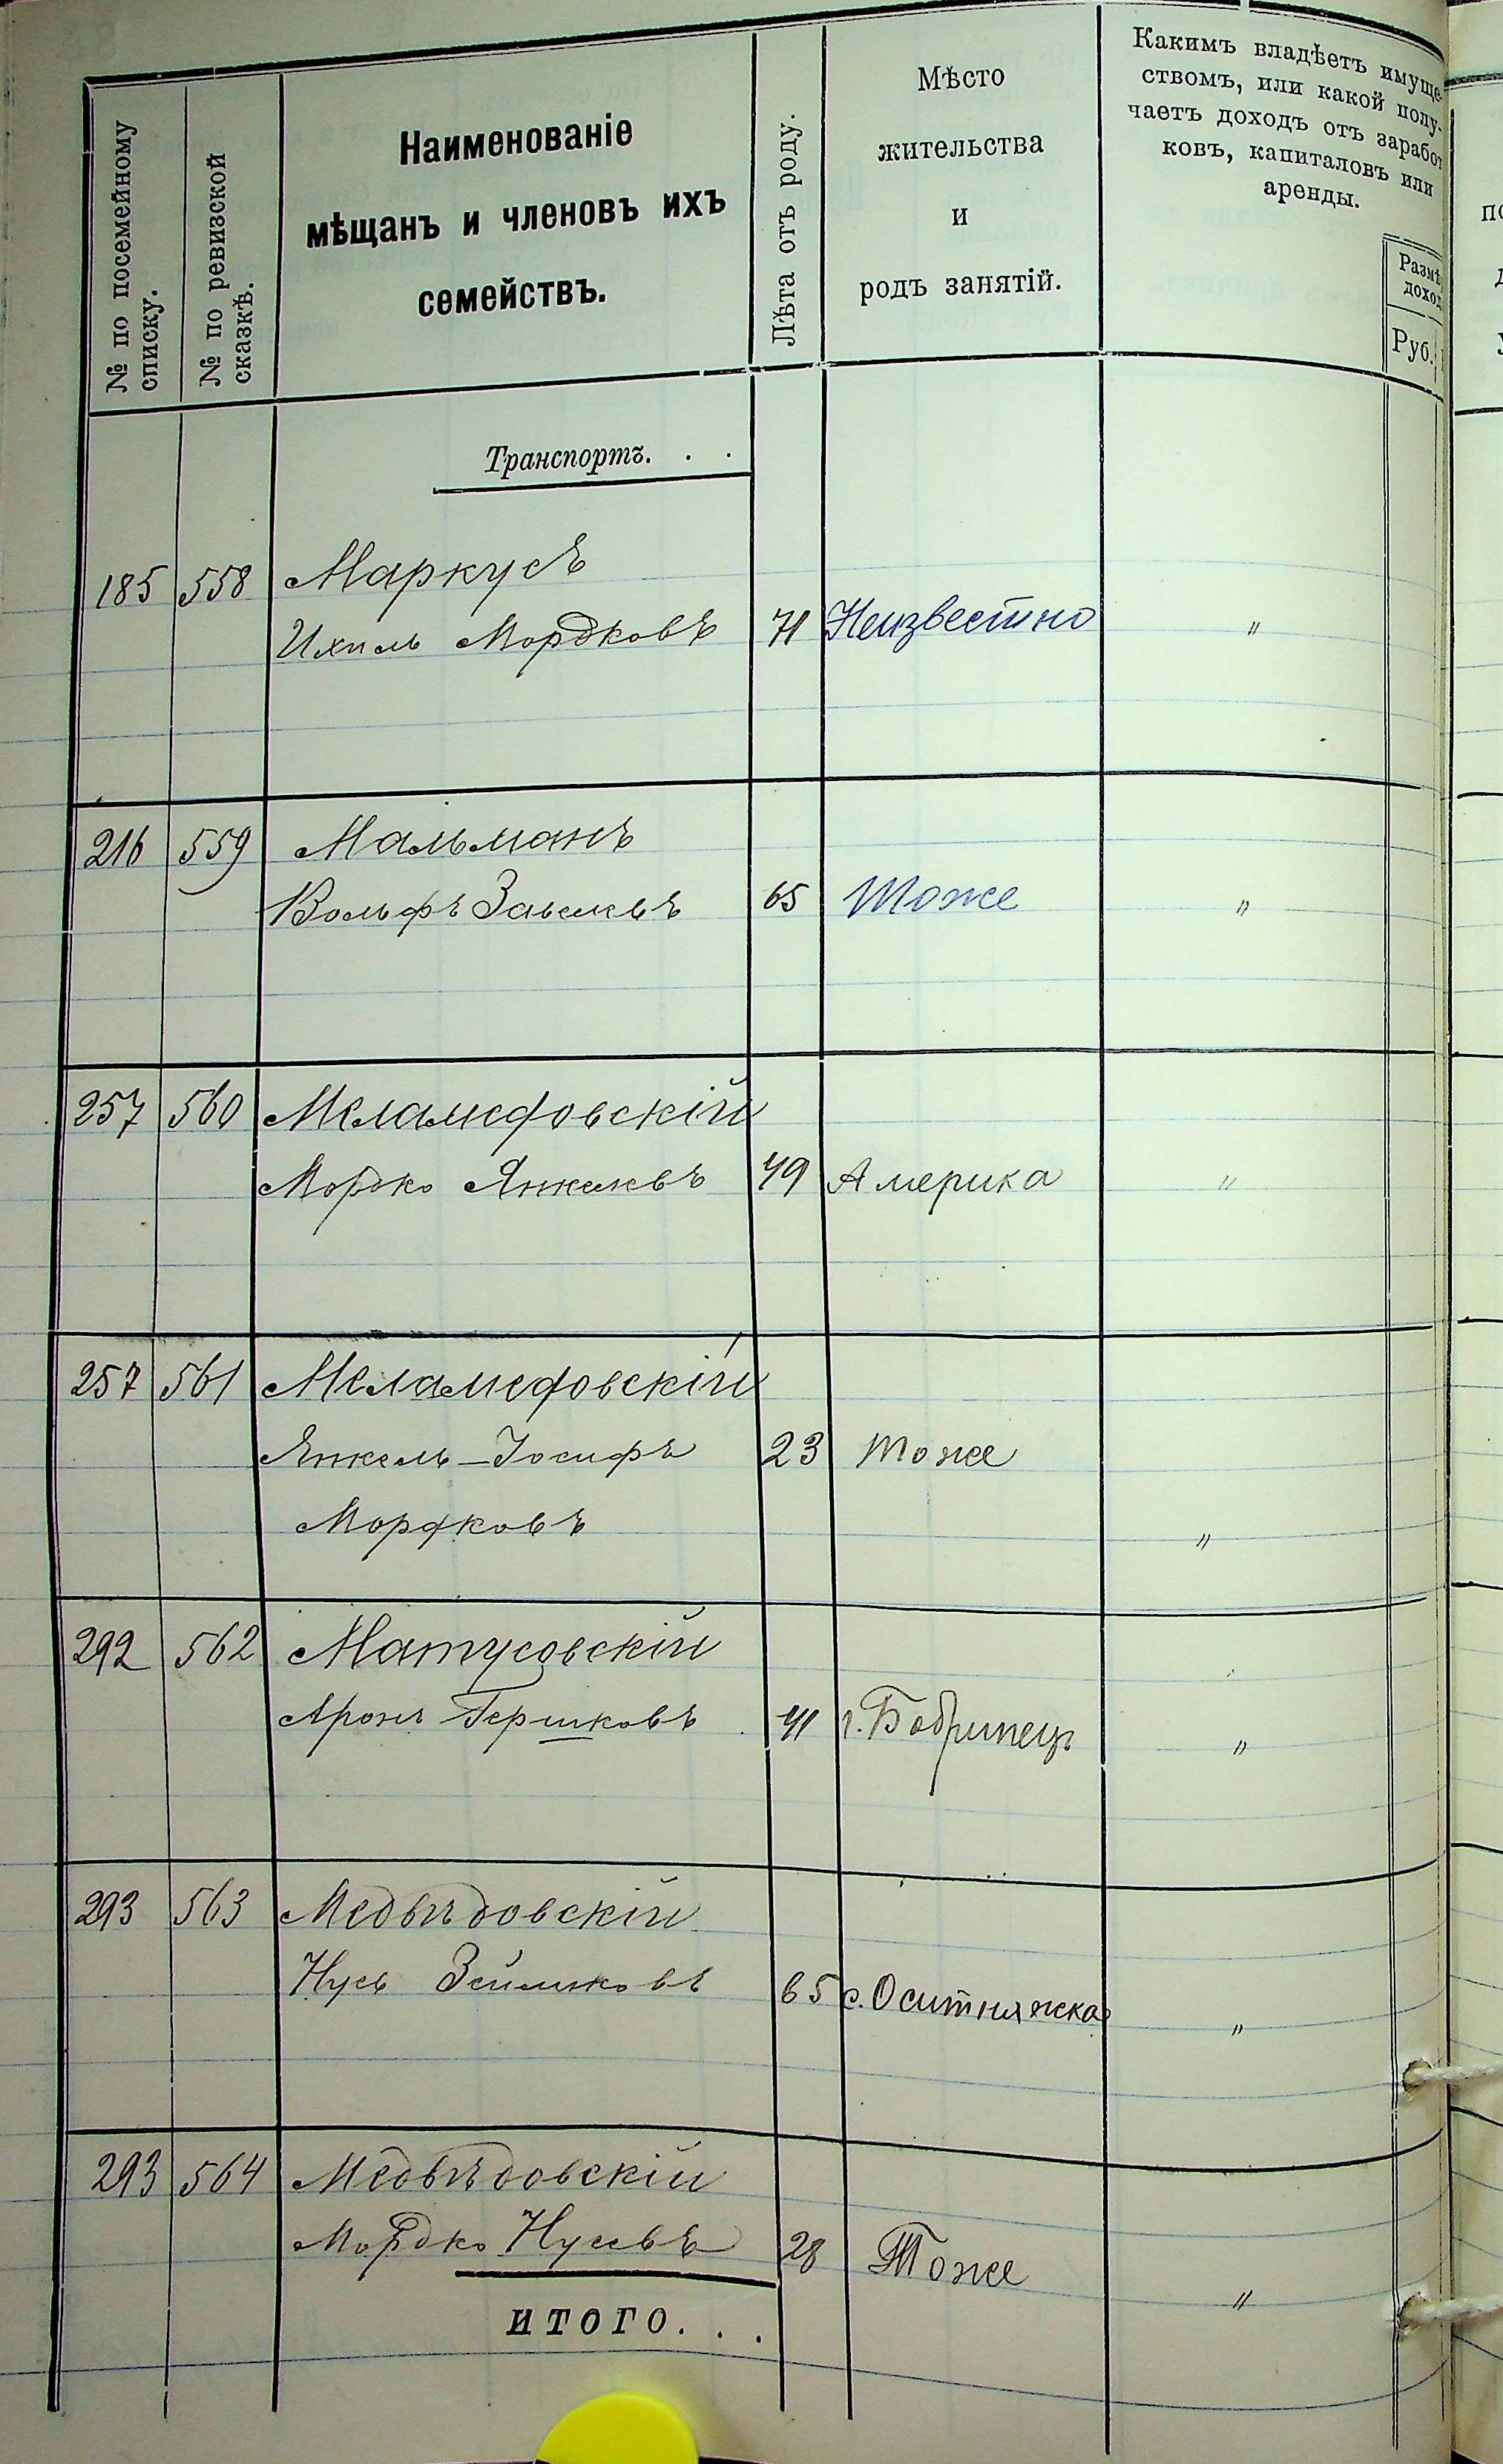 № по посемейному
списку.
№ по ревизской
сказкѣ.
Наименованіе
мѣщанъ и членовъ ихъ
семействъ.
Лѣта отъ роду.
Мѣсто
жительства
и
родъ занятій.
Какимъ владѣетъ имуще-
ствомъ, или какой полу-
чаетъ доходъ отъ заработ
ковъ, капиталовъ или
аренды.
Размѣ
доход
Руб.
Транспортъ. . .
185 558 Маркусъ
Ихиль Мордковъ 71 Неизвестно "
216 559 Мальманъ
Вольфъ Завелевъ 65 Тоже "
257 560 Меламедовскій
Мордко Янкелевъ 49 Америка "
257 561 Меламедовскій
Янкель-Іосифъ 23 Тоже
Мордковъ "
292 562 Матусовскій
Аронъ Гершковъ 41 г. Бобринец "
293 563 Медвѣдовскій
Нусь Зейликовъ 65 с. Оситняжка "
293 564 Медвѣдовскій
Мордко Нусевъ 28 Тоже "
ИТОГО. . .